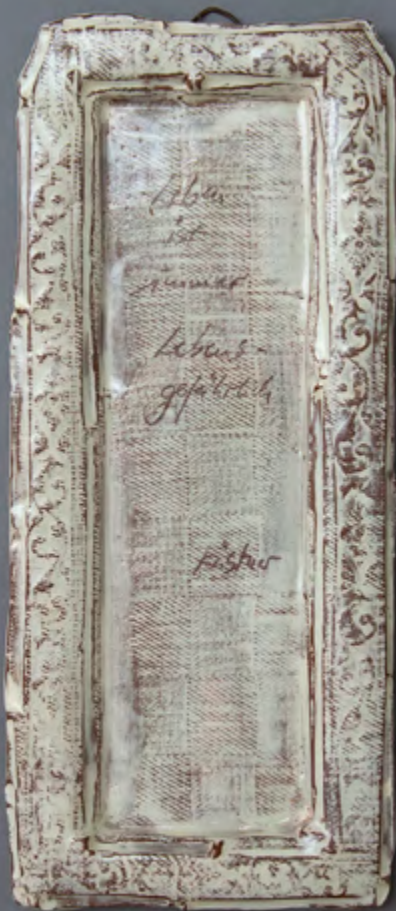 Leben
ist
immer
Lebens-
gefährlich
Kästner